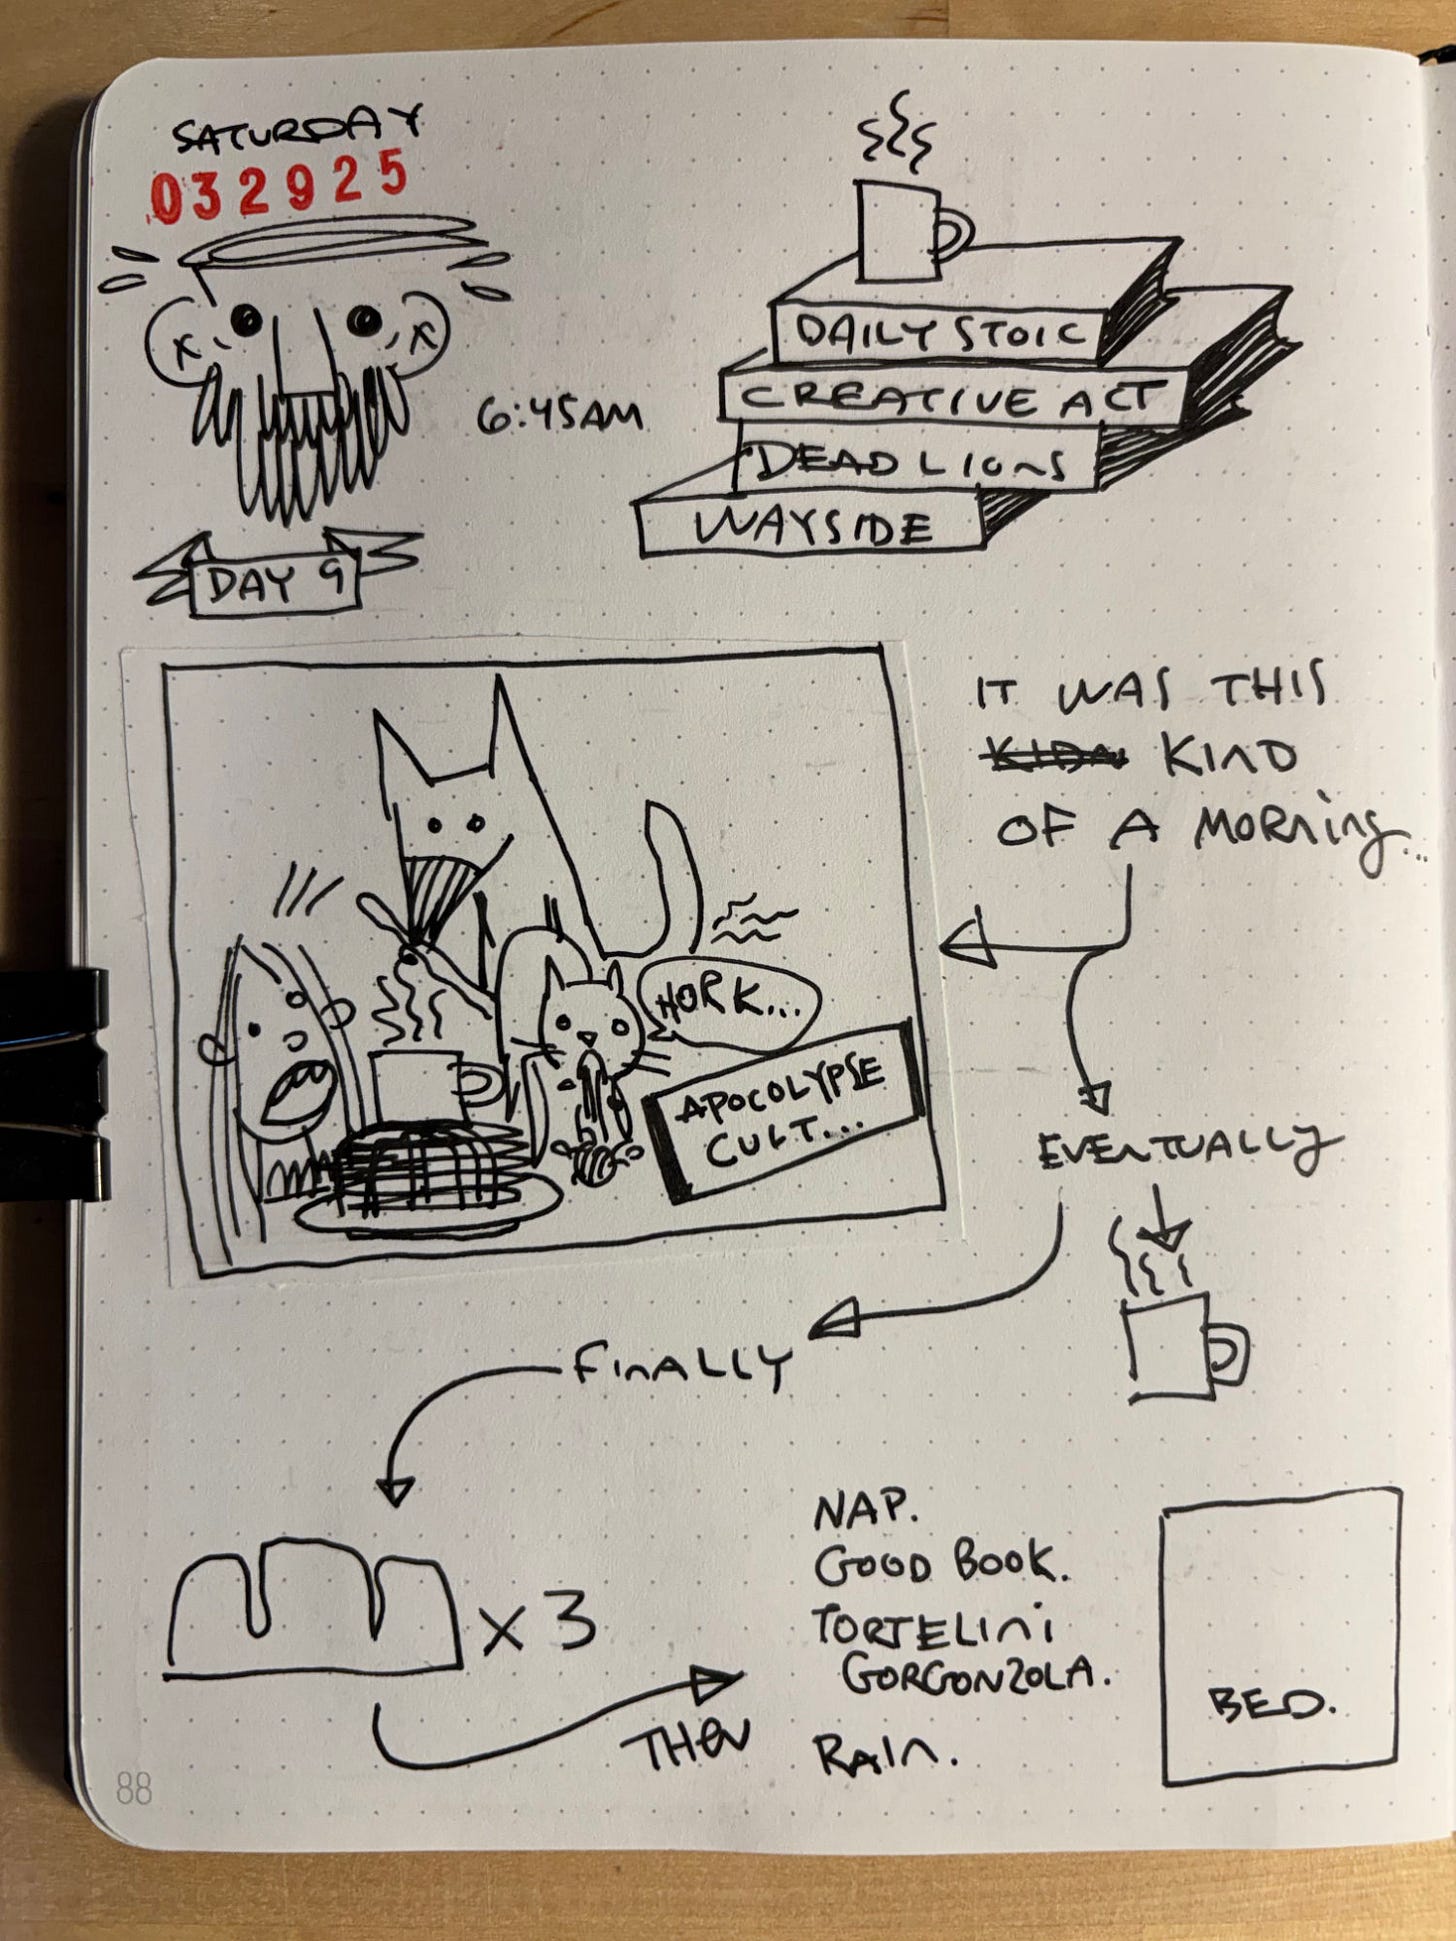 SATURDAY
032925
6:45AM
DAY 9
DAILY STOIC
CREATIVE ACT
DEAD LIONS
WAYSIDE
IT WAS THIS
KIDN KIND
OF A MORNING...
HORK...
APOCOLYPSE
CULT...
EVENTUALLY
FINALLY
x 3
THEN
NAP.
GOOD BOOK.
TORTELINI
GORGONZOLA.
RAIN.
BED.
88